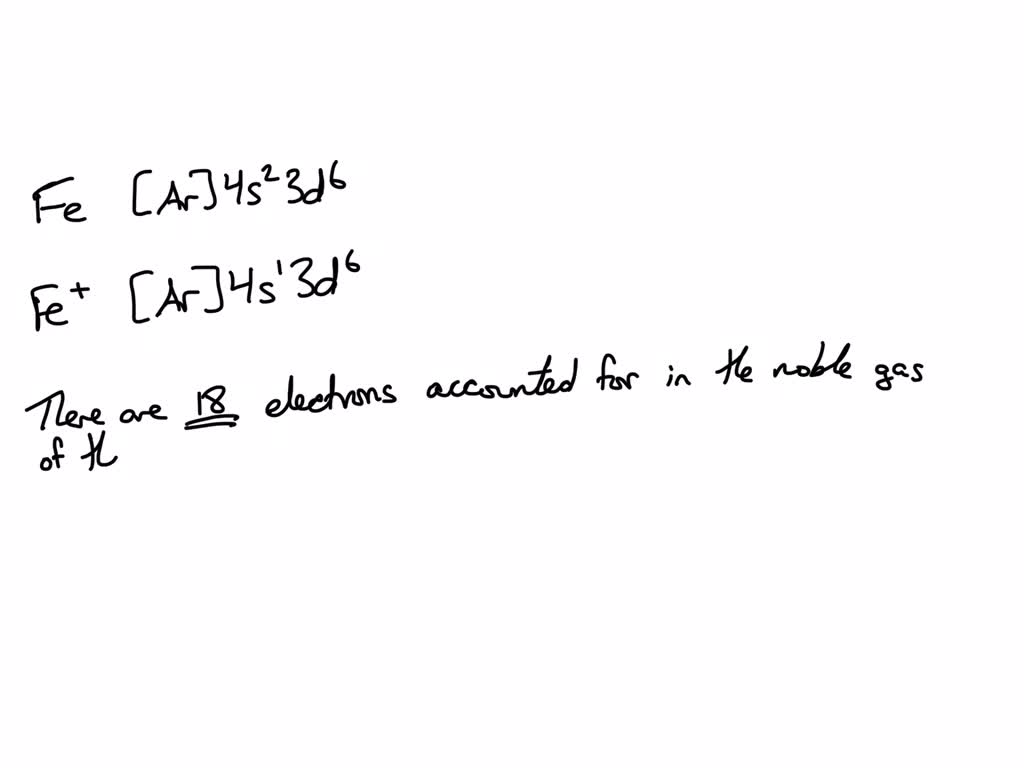 Fe [Ar]4s²3d⁶
Fe⁺ [Ar]4s¹3d⁶
There are 18 electrons accounted for in the noble gas
of th